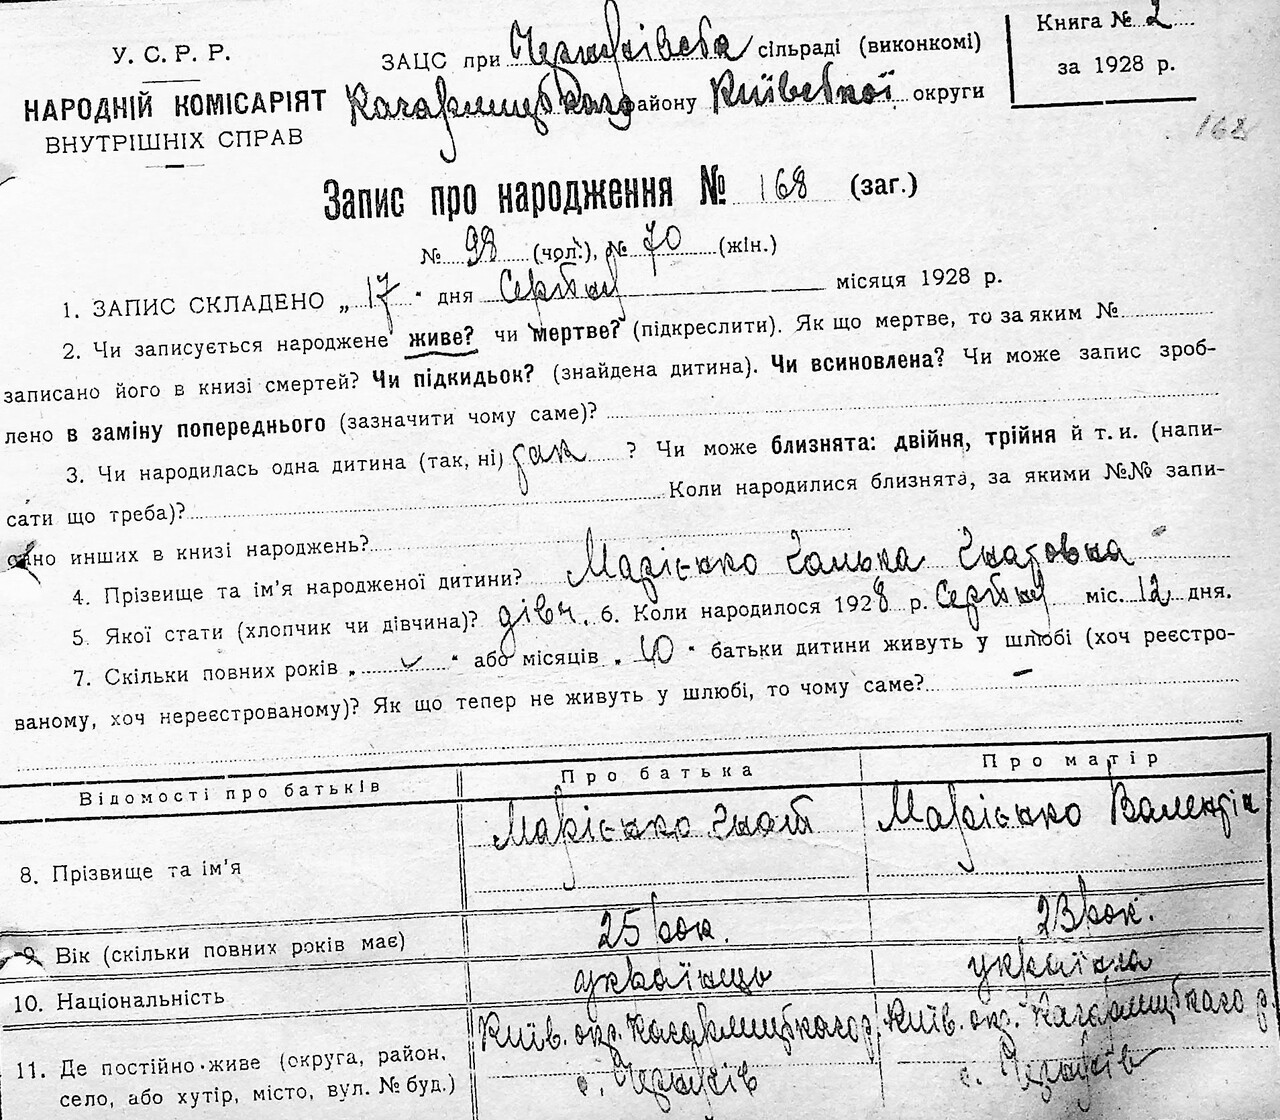 У.С.Р.Р.
НАРОДНІЙ КОМІСАРІЯТ
ВНУТРІШНІХ СПРАВ
ЗАЦС при сільраді (виконкомі)
району Київської округи
Книга № 2
за 1928 р.
168
Запис про народження № 168 (заг.)
№ 98 (чол.), № 70 (жін.)
1. ЗАПИС СКЛАДЕНО „ 17 " дня Серпня місяця 1928 р.
2. Чи записується народжене живе? чи мертве? (підкреслити). Як що мертве, то за яким №
записано його в книзі смертей? Чи підкидьок? (знайдена дитина). Чи всиновлена? Чи може запис зроб-
лено в заміну попереднього (зазначити чому саме)?
3. Чи народилась одна дитина (так, ні) так ? Чи може близнята: двійня, трійня й т. и. (напи-
сати що треба)? Коли народилися близнята, за якими №№ запи-
сано инших в книзі народжень?
4. Прізвище та ім'я народженої дитини? Марієнко Галька Гнатовна
5. Якої стати (хлопчик чи дівчина)? дівч. 6. Коли народилося 1928 р. Серпня міс. 12 дня.
7. Скільки повних років „ " або місяців „ 10 " батьки дитини живуть у шлюбі (хоч реєстро-
ваному, хоч нереєстрованому)? Як що тепер не живуть у шлюбі, то чому саме? —
Відомості про батьків Про батька Про матір
8. Прізвище та ім'я Марієнко Гнат Марієнко Валентін
9. Вік (скільки повних років має) 25 рок. 23 рок.
10. Національність українець українка
11. Де постійно живе (округа, район, Київ. окр. Кагарлицького р. Київ. окр. Кагарлицкаго р.
село, або хутір, місто, вул. № буд.) с. с.